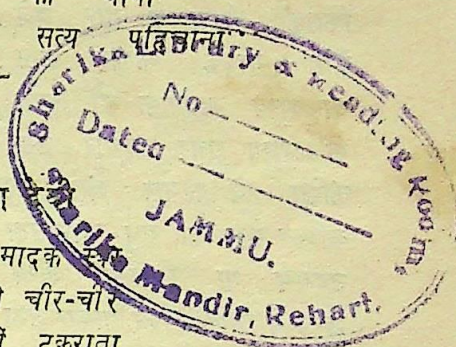 सत्य पहिचाना
Sharika Library & Reading Room,
No
Dated
JAMMU.
Sharika Mandir, Rehari.
मादक स्वर
चीर-चीर
टकराता